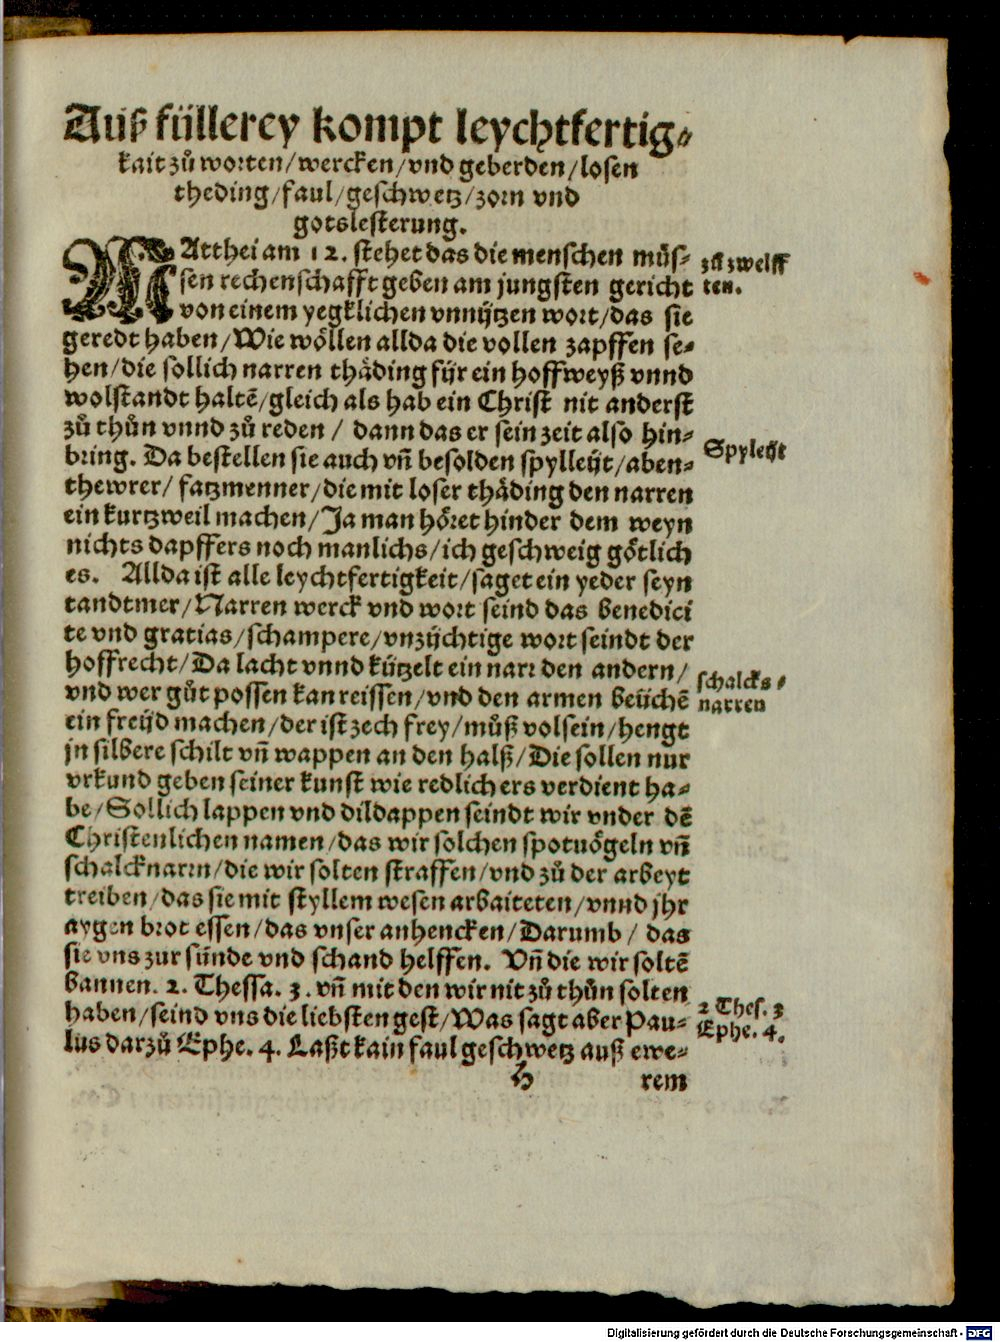 Auß füllerey kompt leychtfertig-
kait zů worten/wercken/vnd geberden/losen
theding/faul/geschwetz/zorn vnd
gotslesterung.
MAtthei am 12. stehet das die menschen müs-
sen rechenschafft geben am jungsten gericht
von einem yegklichen vnnützen wort/das sie
geredt haben/Wie wöllen allda die vollen zapffen se-
hen/die sollich narren thäding für ein hoffweyß vnnd
wolstandt haltē/gleich als hab ein Christ nit anderst
zů thůn vnnd zů reden / dann das er sein zeit also hin-
bring. Da bestellen sie auch vñ besolden spylleüt/aben-
thewrer/ fatzmenner/die mit loser thäding den narren
ein kurtzweil machen/Ja man höret hinder dem weyn
nichts dapffers noch manlichs/ich geschweig götlich
es. Allda ist alle leychtfertigkeit/saget ein yeder seyn
tandtmer/Narren werck vnd wort seind das benedici
te vnd gratias/schampere/vnzüchtige wort seindt der
hoffrecht/Da lacht vnnd kützelt ein narr den andern/
vnd wer gůt possen kan reissen/vnd den armen beüchē
ein freüd machen/der ist zech frey/můß vol sein/hengt
jn silbere schilt vñ wappen an den halß/Die sollen nur
vrkund geben seiner kunst wie redlich ers verdient ha-
be/Sollich lappen vnd dildappen seindt wir vnder dē
Christenlichen namen/das wir solchen spotuögeln vñ
schalcknarrn/die wir solten straffen/vnd zů der arbeyt
treiben/das sie mit styllem wesen arbaiteten/vnnd jhr
aygen brot essen/das vnser anhencken/Darumb / das
sie vns zur sünde vnd schand helffen. Vñ die wir soltē
bannen. 2. Thessa. 3. vñ mit den wir nit zů thůn solten
haben/seind vns die liebsten gest/Was sagt aber Pau-
lus darzů Ephe. 4. Laßt kain faul geschwetz auß ewe-
H rem
zů zwelff
ten.
Spyleüt
schalcks-
narren
2 Thes. 3
Ephe. 4.
Digitalisierung gefördert durch die Deutsche Forschungsgemeinschaft - DFG